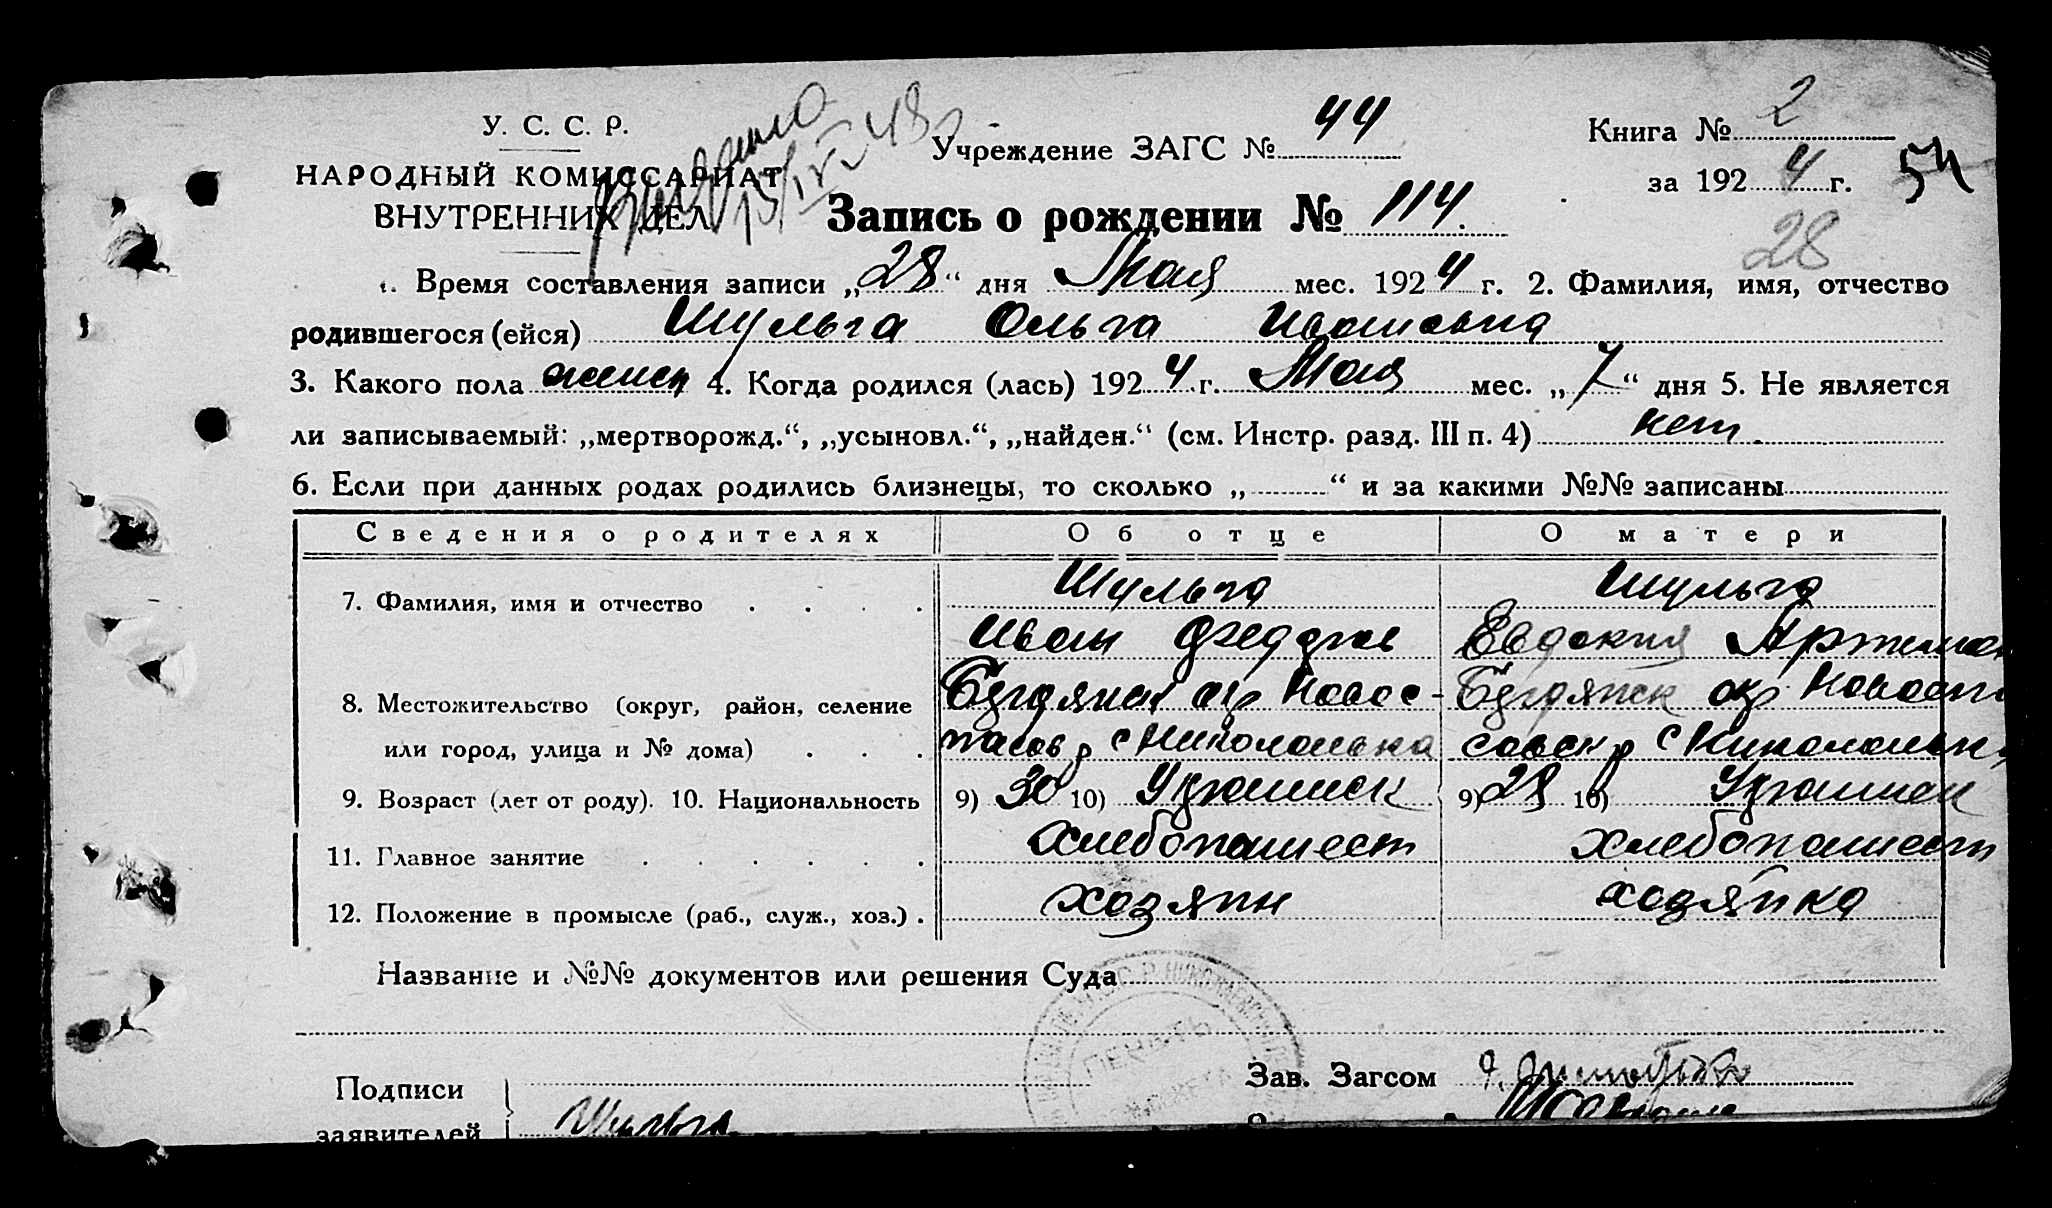 У. С. С. Р.
НАРОДНЫЙ КОМИССАРИАТ
ВНУТРЕННИХ ДЕЛ
Учреждение ЗАГС № 44
Книга № 2
за 1924 г.
54
28
Запись о рождении № 114.
1. Время составления записи „28“ дня Мая мес. 1924 г. 2. Фамилия, имя, отчество
родившегося (ейся) Шульга Ольга Ивановна
3. Какого пола женск 4. Когда родился (лась) 1924 г. Мая мес. „7“ дня 5. Не является
ли записываемый: „мертворожд.“, „усыновл.“, „найден.“ (см. Инстр. разд. III п. 4) нет.
6. Если при данных родах родились близнецы, то сколько „ “ и за какими №№ записаны
Сведения о родителях Об отце О матери
Шульга Шульга
7. Фамилия, имя и отчество
Иван Федоров Евдокия Артемов
8. Местожительство (округ, район, селение Бердянск окр Новос- Бердянск окр Новоспа
или город, улица и № дома) пасов р с Николаевка совск р с Николаевк
9. Возраст (лет от роду). 10. Национальность 9) 30 10) Украинск 9) 28 10) Украинск
11. Главное занятие хлебопашест хлебопашест
12. Положение в промысле (раб., служ., хоз.) хозяин хозяйка
Название и №№ документов или решения Суда
ПЕЧАТЬ
Подписи
заявителей Шульга
Зав. Загсом